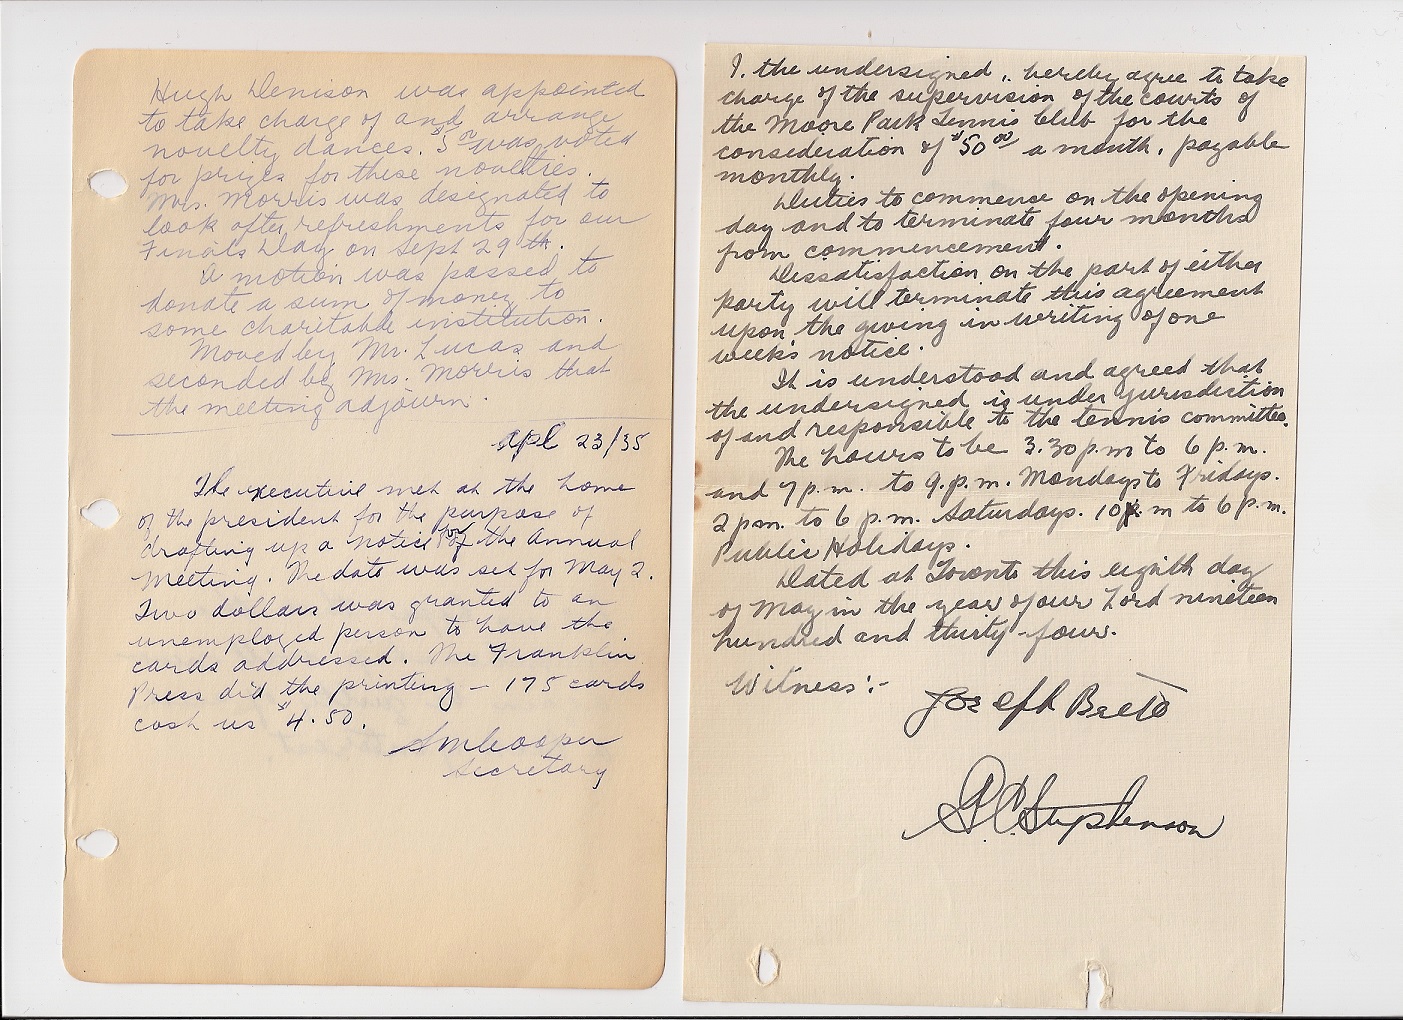 Hugh Denison was appointed
to take charge of and arrange
novelty dances. $5.00 was voted
for prizes for these novelties.
Mrs. Morris was designated to
look after refreshments for our
Finals Day on Sept 29th.
A motion was passed to
donate a sum of money to
some charitable institution.
Moved by Mr. Lucas and
seconded by Mrs. Morris that
the meeting adjourn.
Apl 23/35
The executive met at the home
of the president for the purpose of
drafting up a notice for the annual
meeting. The date was set for May 2.
Two dollars was granted to an
unemployed person to have the
cards addressed. The Franklin
Press did the printing - 175 cards
cost us $4.50.
Cooper
Secretary
I, the undersigned, hereby agree to take
charge of the supervision of the courts of
the Moore Park Tennis Club for the
consideration of $50.00 a month, payable
monthly.
Duties to commence on the opening
day and to terminate four months
from commencement.
Dissatisfaction on the part of either
party will terminate this agreement
upon the giving in writing of one
week's notice.
It is understood and agreed that
the undersigned is under jurisdiction
of and responsible to the tennis committee.
The hours to be 3.30 p.m to 6 p.m.
and 7 p.m. to 9. p.m. Mondays to Fridays.
2 p.m. to 6 p.m. Saturdays. 10 m to 6 p.m.
Public Holidays.
Dated at Toronto this eighth day
of May in the year of our Lord nineteen
hundred and thirty-four.
Witness:-
Joseph
Stephenson